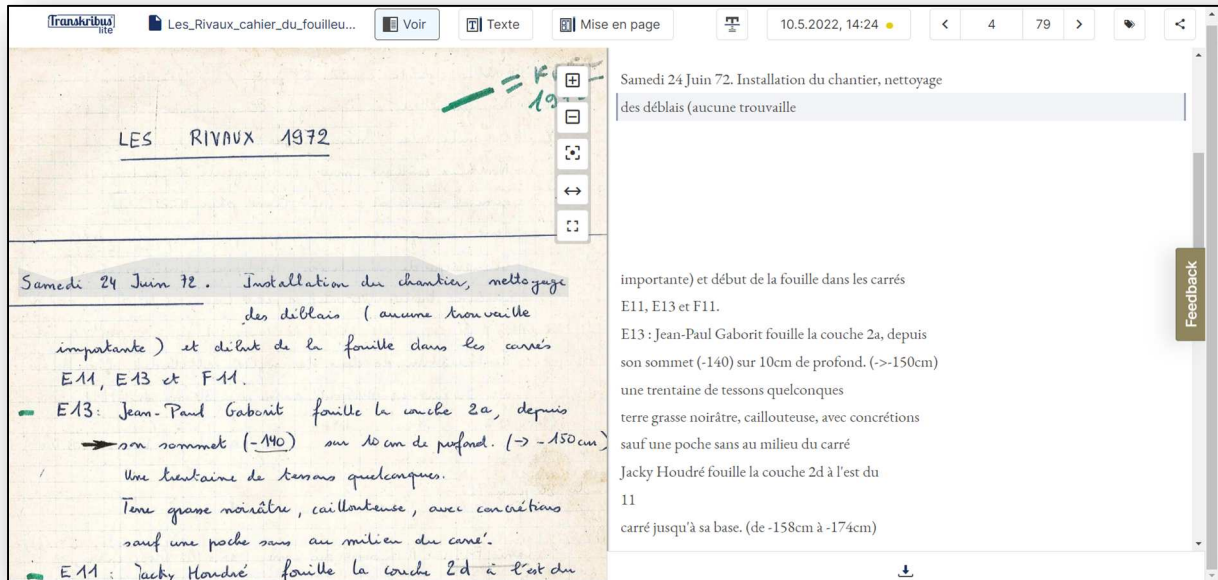 Transkribus lite
Les_Rivaux_cahier_du_fouilleu...
Voir
Texte
Mise en page
10.5.2022, 14:24
4
79
LES RIVAUX 1972
Samedi 24 Juin 72. Installation du chantier, nettoyage
des déblais (aucune trouvaille
importante) et début de la fouille dans les carrés
E11, E13 et F11.
E13: Jean-Paul Gaborit fouille la couche 2a, depuis
son sommet (-140) sur 10 cm de profond. (→ -150cm)
Une trentaine de tessons quelconques.
Terre grasse noirâtre, caillouteuse, avec concrétions
sauf une poche sans au milieu du carré.
E11: Jacky Houdré fouille la couche 2d à l'est du
Samedi 24 Juin 72. Installation du chantier, nettoyage
des déblais (aucune trouvaille
importante) et début de la fouille dans les carrés
E11, E13 et F11.
E13 : Jean-Paul Gaborit fouille la couche 2a, depuis
son sommet (-140) sur 10cm de profond. (->-150cm)
une trentaine de tessons quelconques
terre grasse noirâtre, caillouteuse, avec concrétions
sauf une poche sans au milieu du carré
Jacky Houdré fouille la couche 2d à l'est du
11
carré jusqu'à sa base. (de -158cm à -174cm)
Feedback